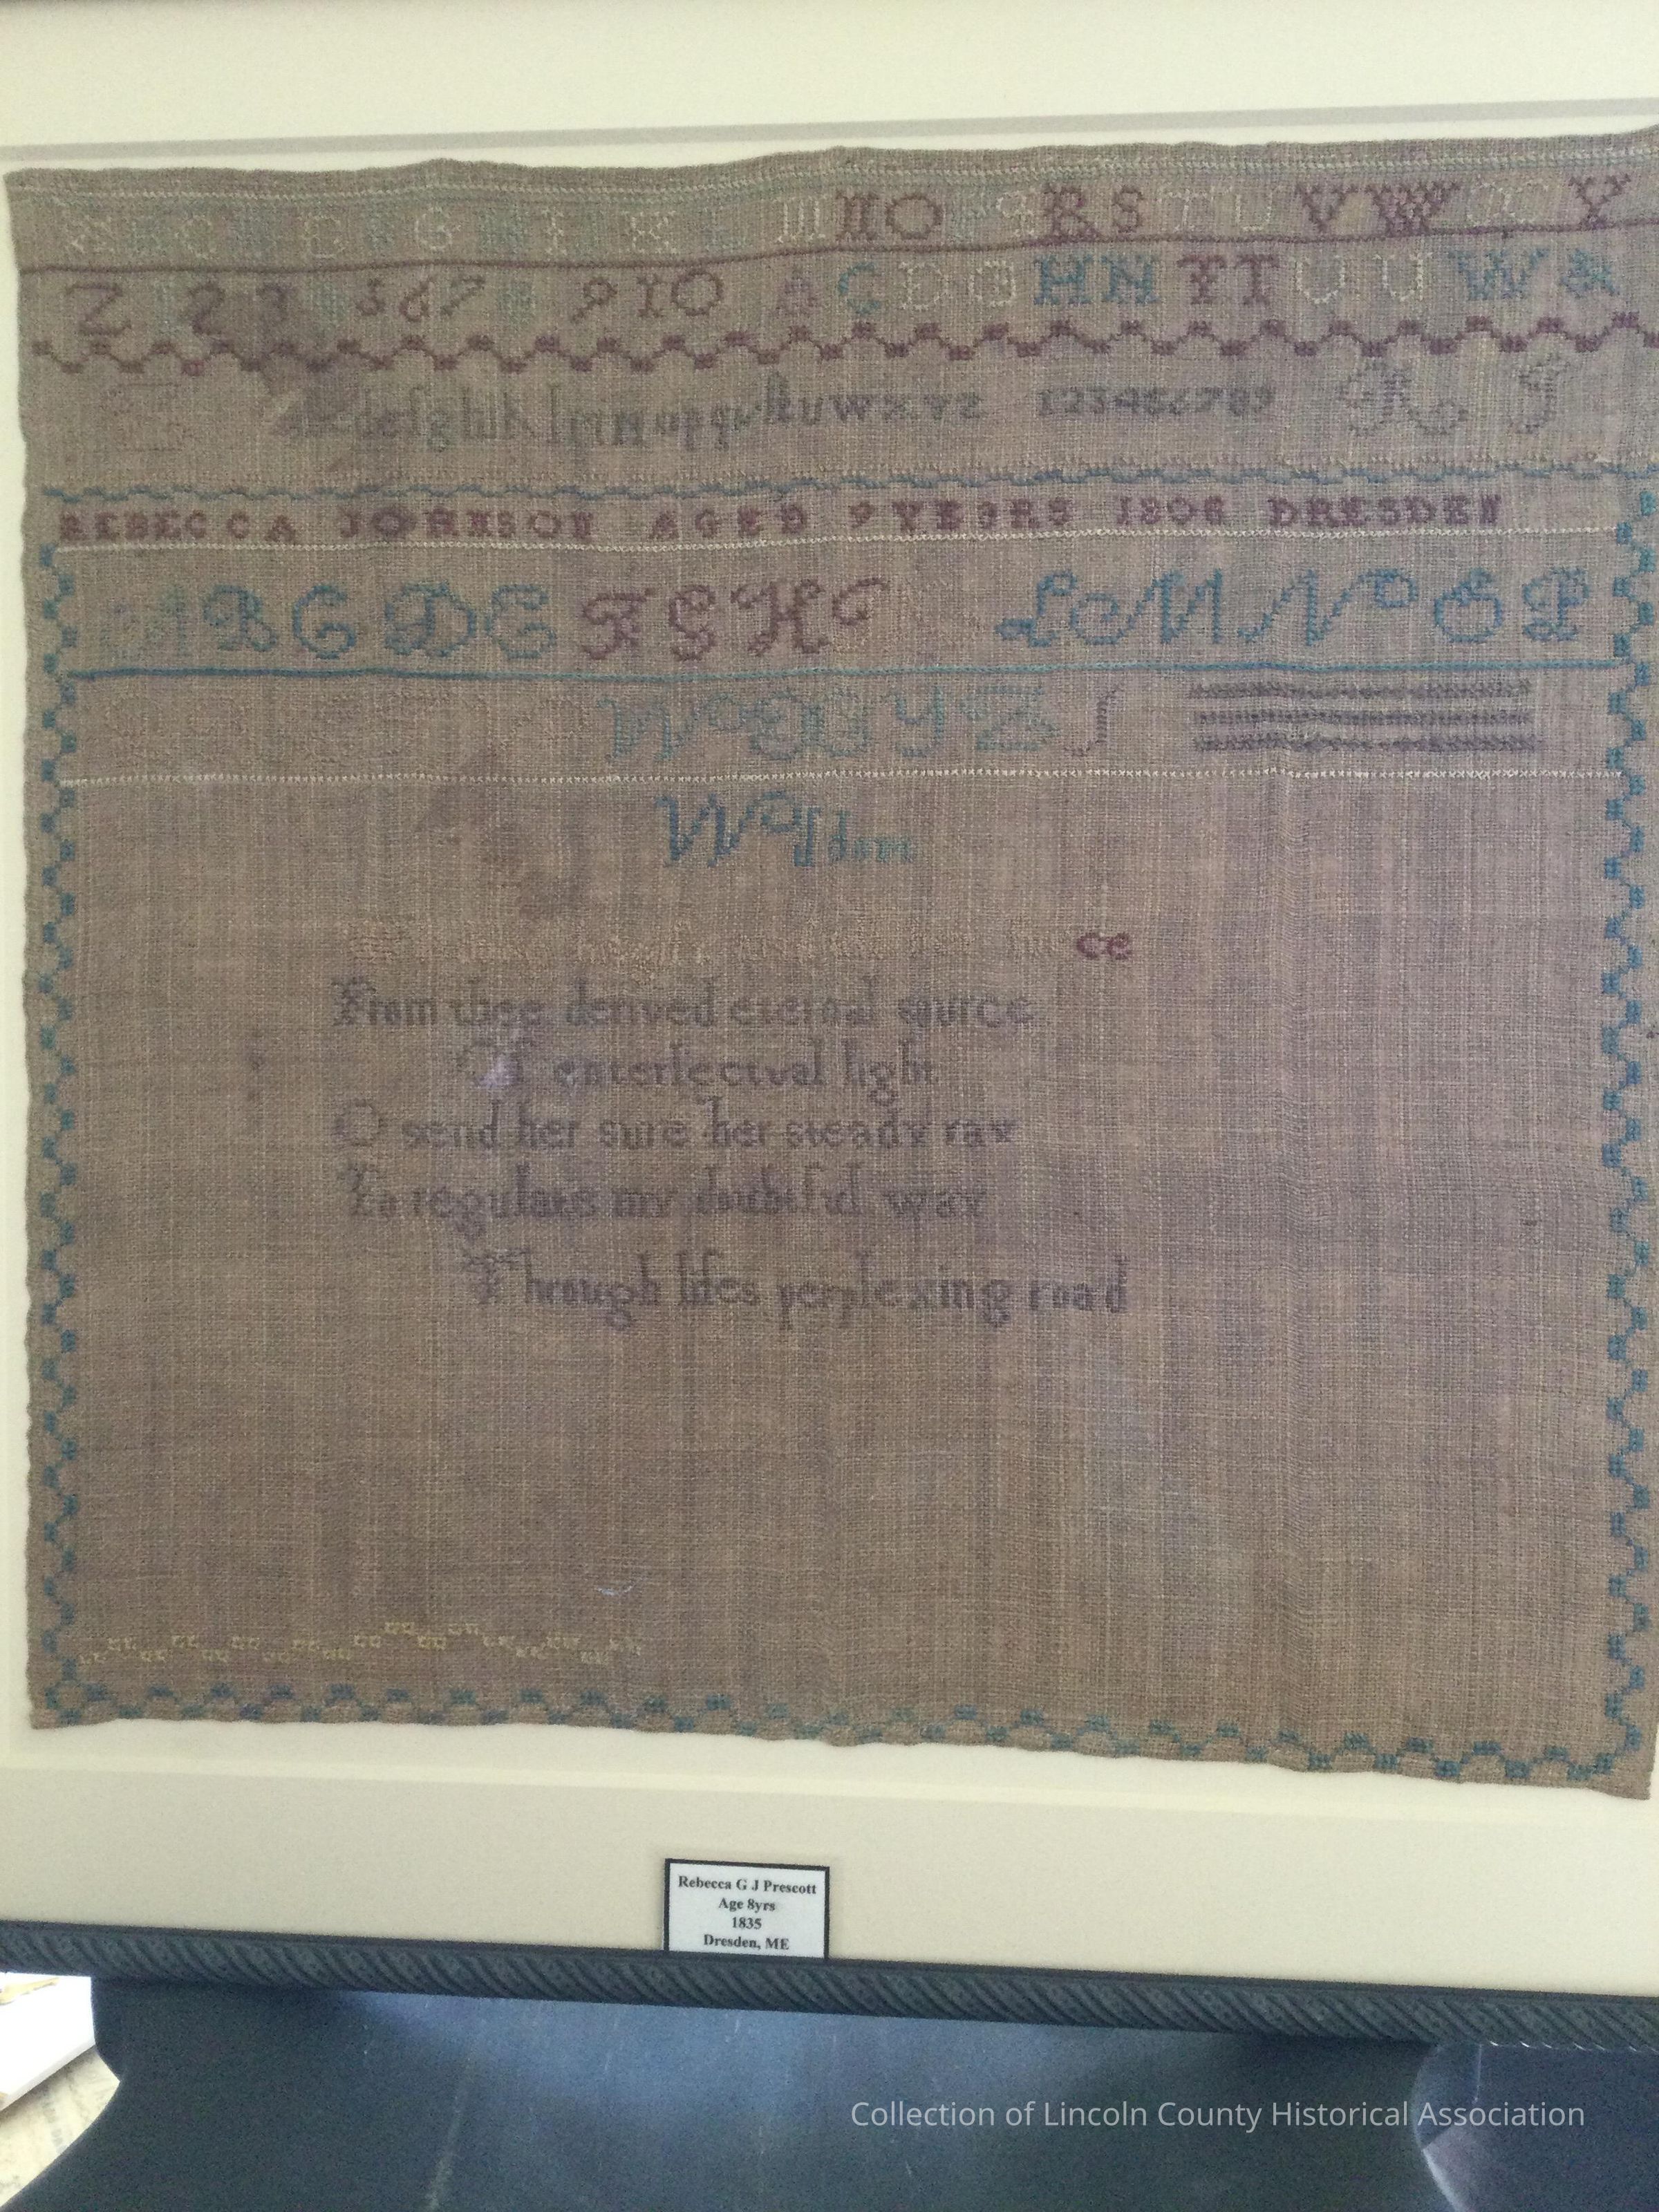 A B C D E F G H I J K L M N O P Q R S T U V W X Y
Z 1 2 3 5 6 7 8 9 10 A C D G H N Y T U U W &
defghik lmnopq tuwxyz 123456789 R J
REBECCA JOHNSON AGED 9 YEARS 1806 DRESDEN
A B C D E F G H I L M N O P
W X Y Z
Wisdom
ce
From thee derived eternal source
Of enterlectual light
O send her sure her steady ray
To regulate my doubtful way
Through lifes perplexing road
Rebecca G J Prescott
Age 8yrs
1835
Dresden, ME
Collection of Lincoln County Historical Association